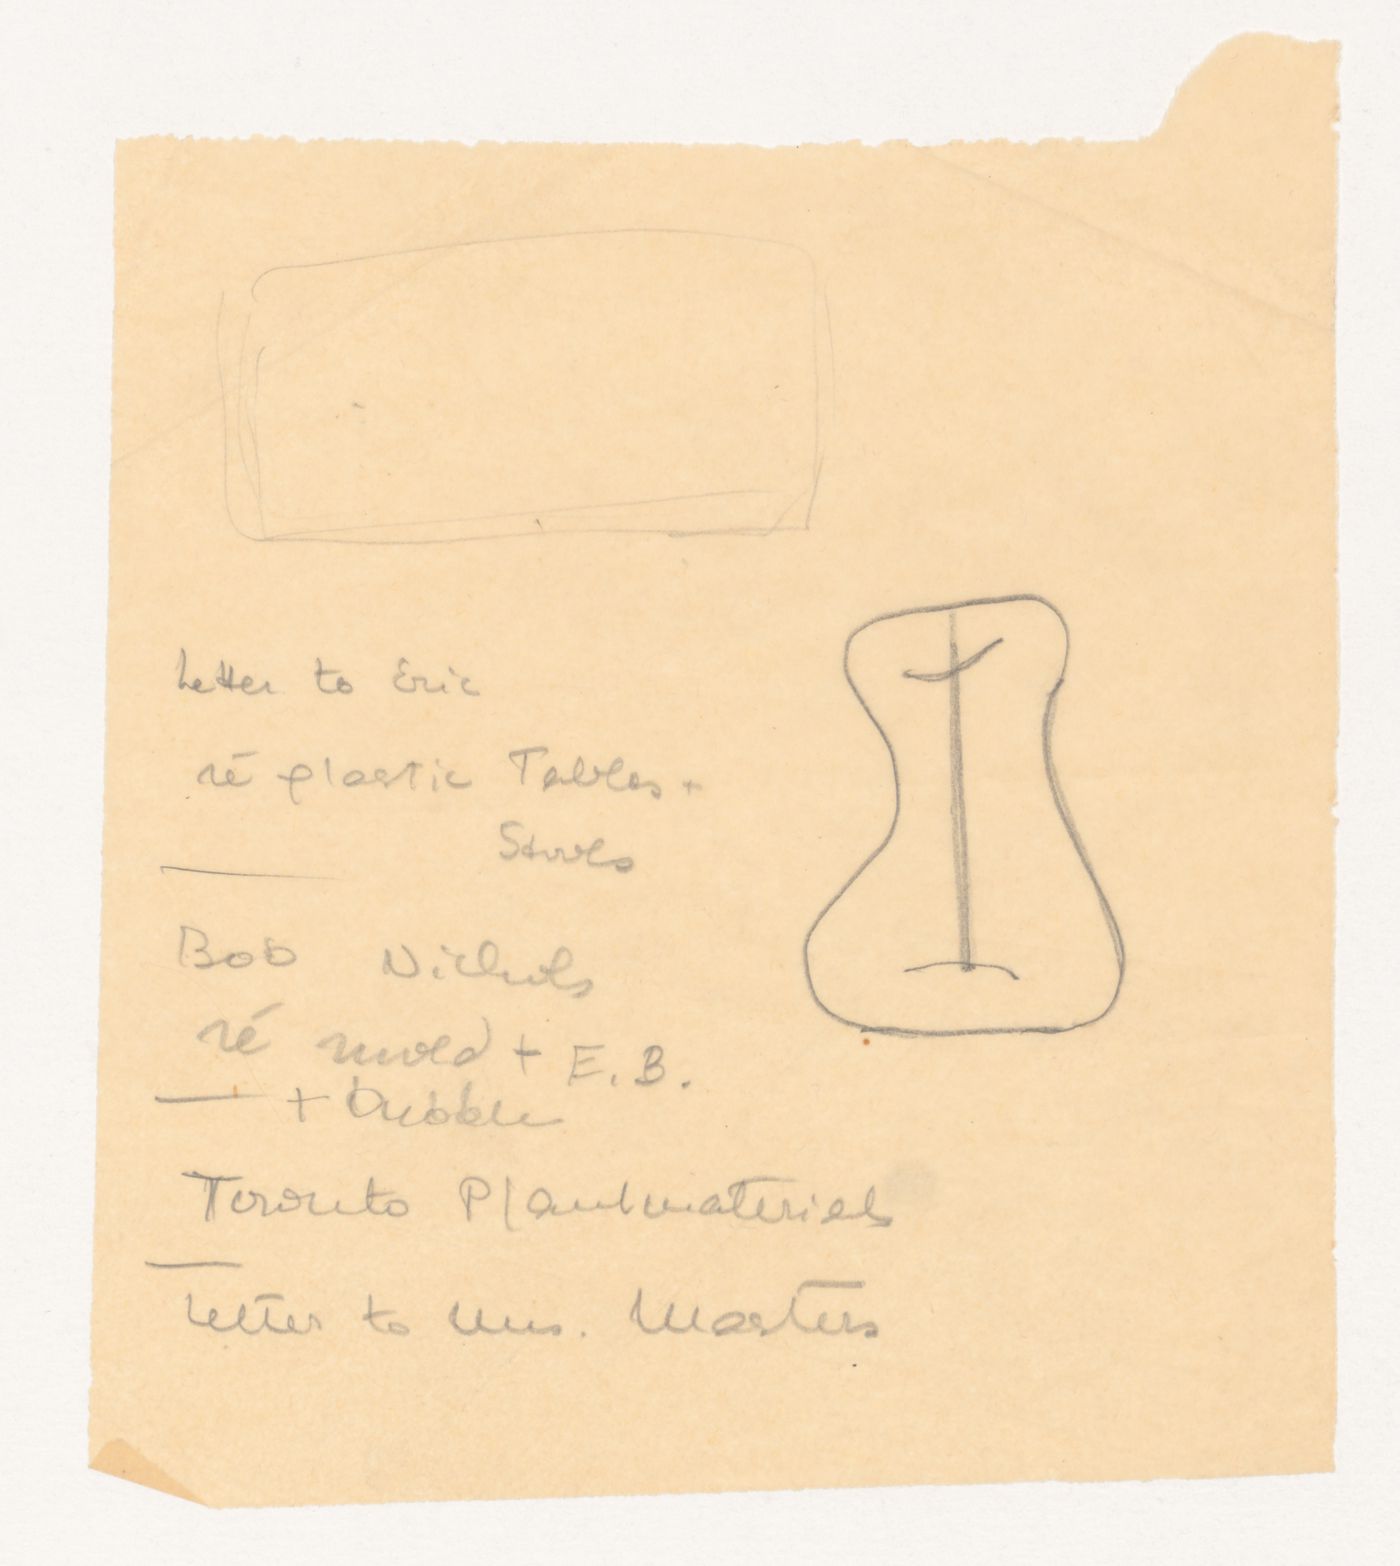 Letter to Eric
ré plastic Tables +
Stools
Bob Nichols
ré mold + E. B.
+
Toronto Plantmaterials
Letter to Mrs. Masters